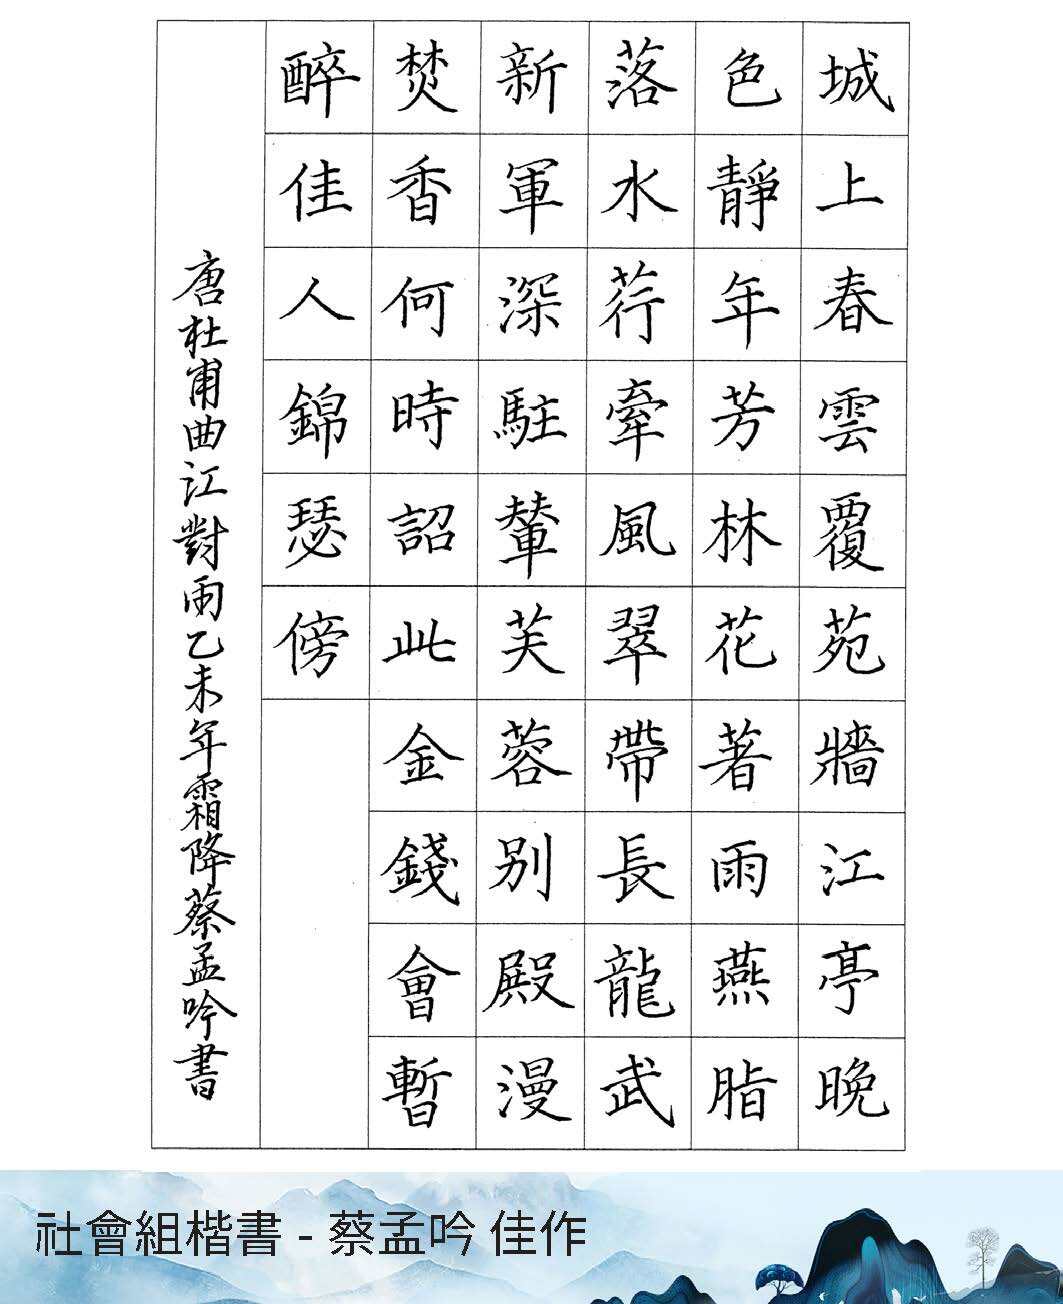 城上春雲覆苑牆江亭晚
色靜年芳林花著雨燕脂
落水荇牽風翠帶長龍武
新軍深駐輦芙蓉別殿漫
焚香何時詔此金錢會暫
醉佳人錦瑟傍
唐杜甫曲江對雨乙未年霜降蔡孟吟書
社會組楷書 - 蔡孟吟 佳作